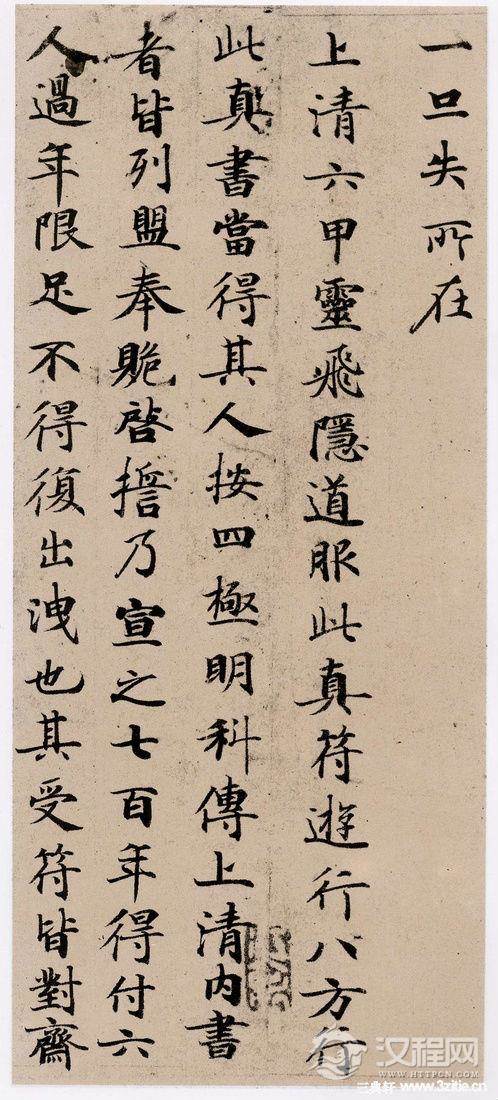 一旦失所在
上清六甲靈飛隱道服此真符遊行八方行
此真書當得其人按四極明科傳上清内書
者皆列盟奉贶啓擔乃宣之七百年得付六
人過年限足不得復出洩也其受符皆對齋
汉程网
HTTPCN.COM
三典轩 www.3zitie.cn